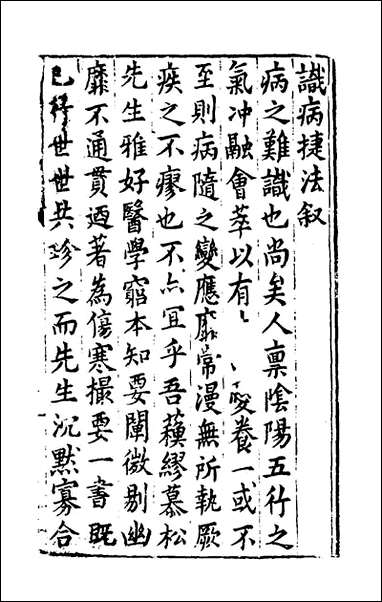 識病捷法叙
病之難識也尚矣人禀陰陽五行之
氣冲融會萃以有養一或不
至則病隨之變應靡常漫無所執厥
疾之不瘳也不亦宜乎吾蘓繆慕松
先生雅好醫學窮本知要闡微剔幽
靡不通貫迺著為傷寒撮要一書旣
已梓世世共珍之而先生沉默寡合